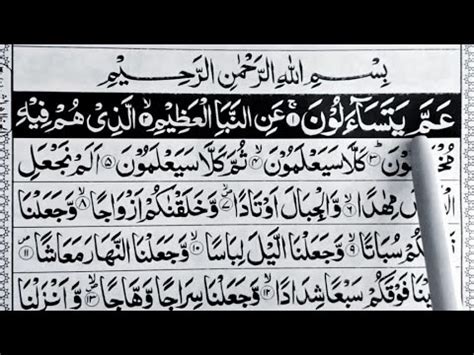 بِسْمِ اللهِ الرَّحْمٰنِ الرَّحِيْمِ
عَمَّ يَتَسَآءَلُوْنَ ۚ﴿۱﴾ عَنِ النَّبَاِ الْعَظِيْمِ ۙ﴿۲﴾ الَّذِىْ هُمْ فِيْهِ
ؕ﴿۳﴾ كَلَّا سَيَعْلَمُوْنَ ۙ﴿۴﴾ ثُمَّ كَلَّا سَيَعْلَمُوْنَ ﴿۵﴾ اَلَمْ نَجْعَلِ
مِهٰدًا ۙ﴿۶﴾ وَّالْجِبَالَ اَوْتَادًا ۙ﴿۷﴾ وَّخَلَقْنٰكُمْ اَزْوَاجًا ۙ﴿۸﴾ وَّجَعَلْنَا
سُبَاتًا ۙ﴿۹﴾ وَّجَعَلْنَا الَّيْلَ لِبَاسًا ۙ﴿۱۰﴾ وَّجَعَلْنَا النَّهَارَ مَعَاشًا ﴿۱۱﴾
فَوْقَكُمْ سَبْعًا شِدَادًا ۙ﴿۱۲﴾ وَّجَعَلْنَا سِرَاجًا وَّهَّاجًا ۙ﴿۱۳﴾ وَّاَنْزَلْنَا